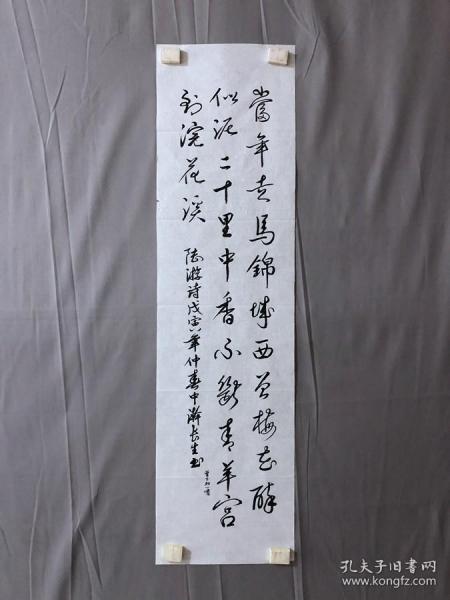 當年走馬錦城西曾為梅花醉
似泥二十里中香不斷青羊宮
到浣花溪
陆游诗戊寅年仲春中澣长生书
孔夫子旧书网
www.kongfz.com